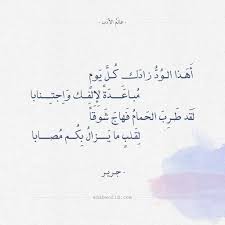 عالم الأدب
أَهَذا الوُدُّ زادَكِ كُلَّ يَومٍ
مُباعَدَةً لِإِلفِكِ وَاِجتِنابا
لَقَد طَرِبَ الحَمامُ فَهاجَ شَوقاً
لِقَلبٍ ما يَزالُ بِكُم مُصابا
- جرير -
adabworld.com